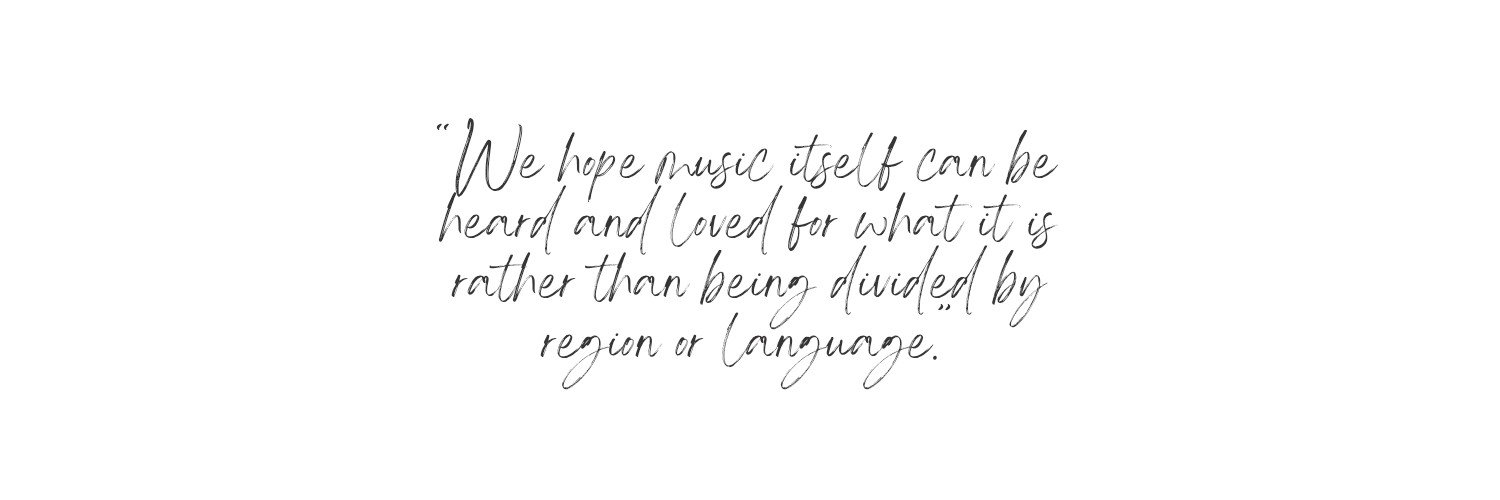 “We hope music itself can be
heard and loved for what it is
rather than being divided by
region or language.”